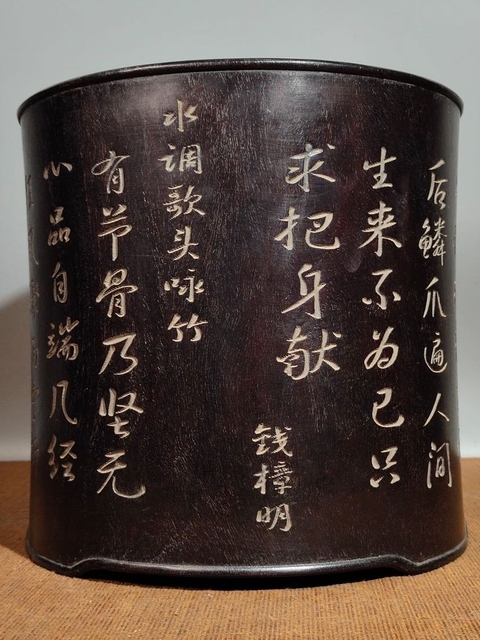 后鳞爪遍人间
生来不为己只
求把身献
钱樟明
水调歌头咏竹
有节骨乃坚无
心品自端几经